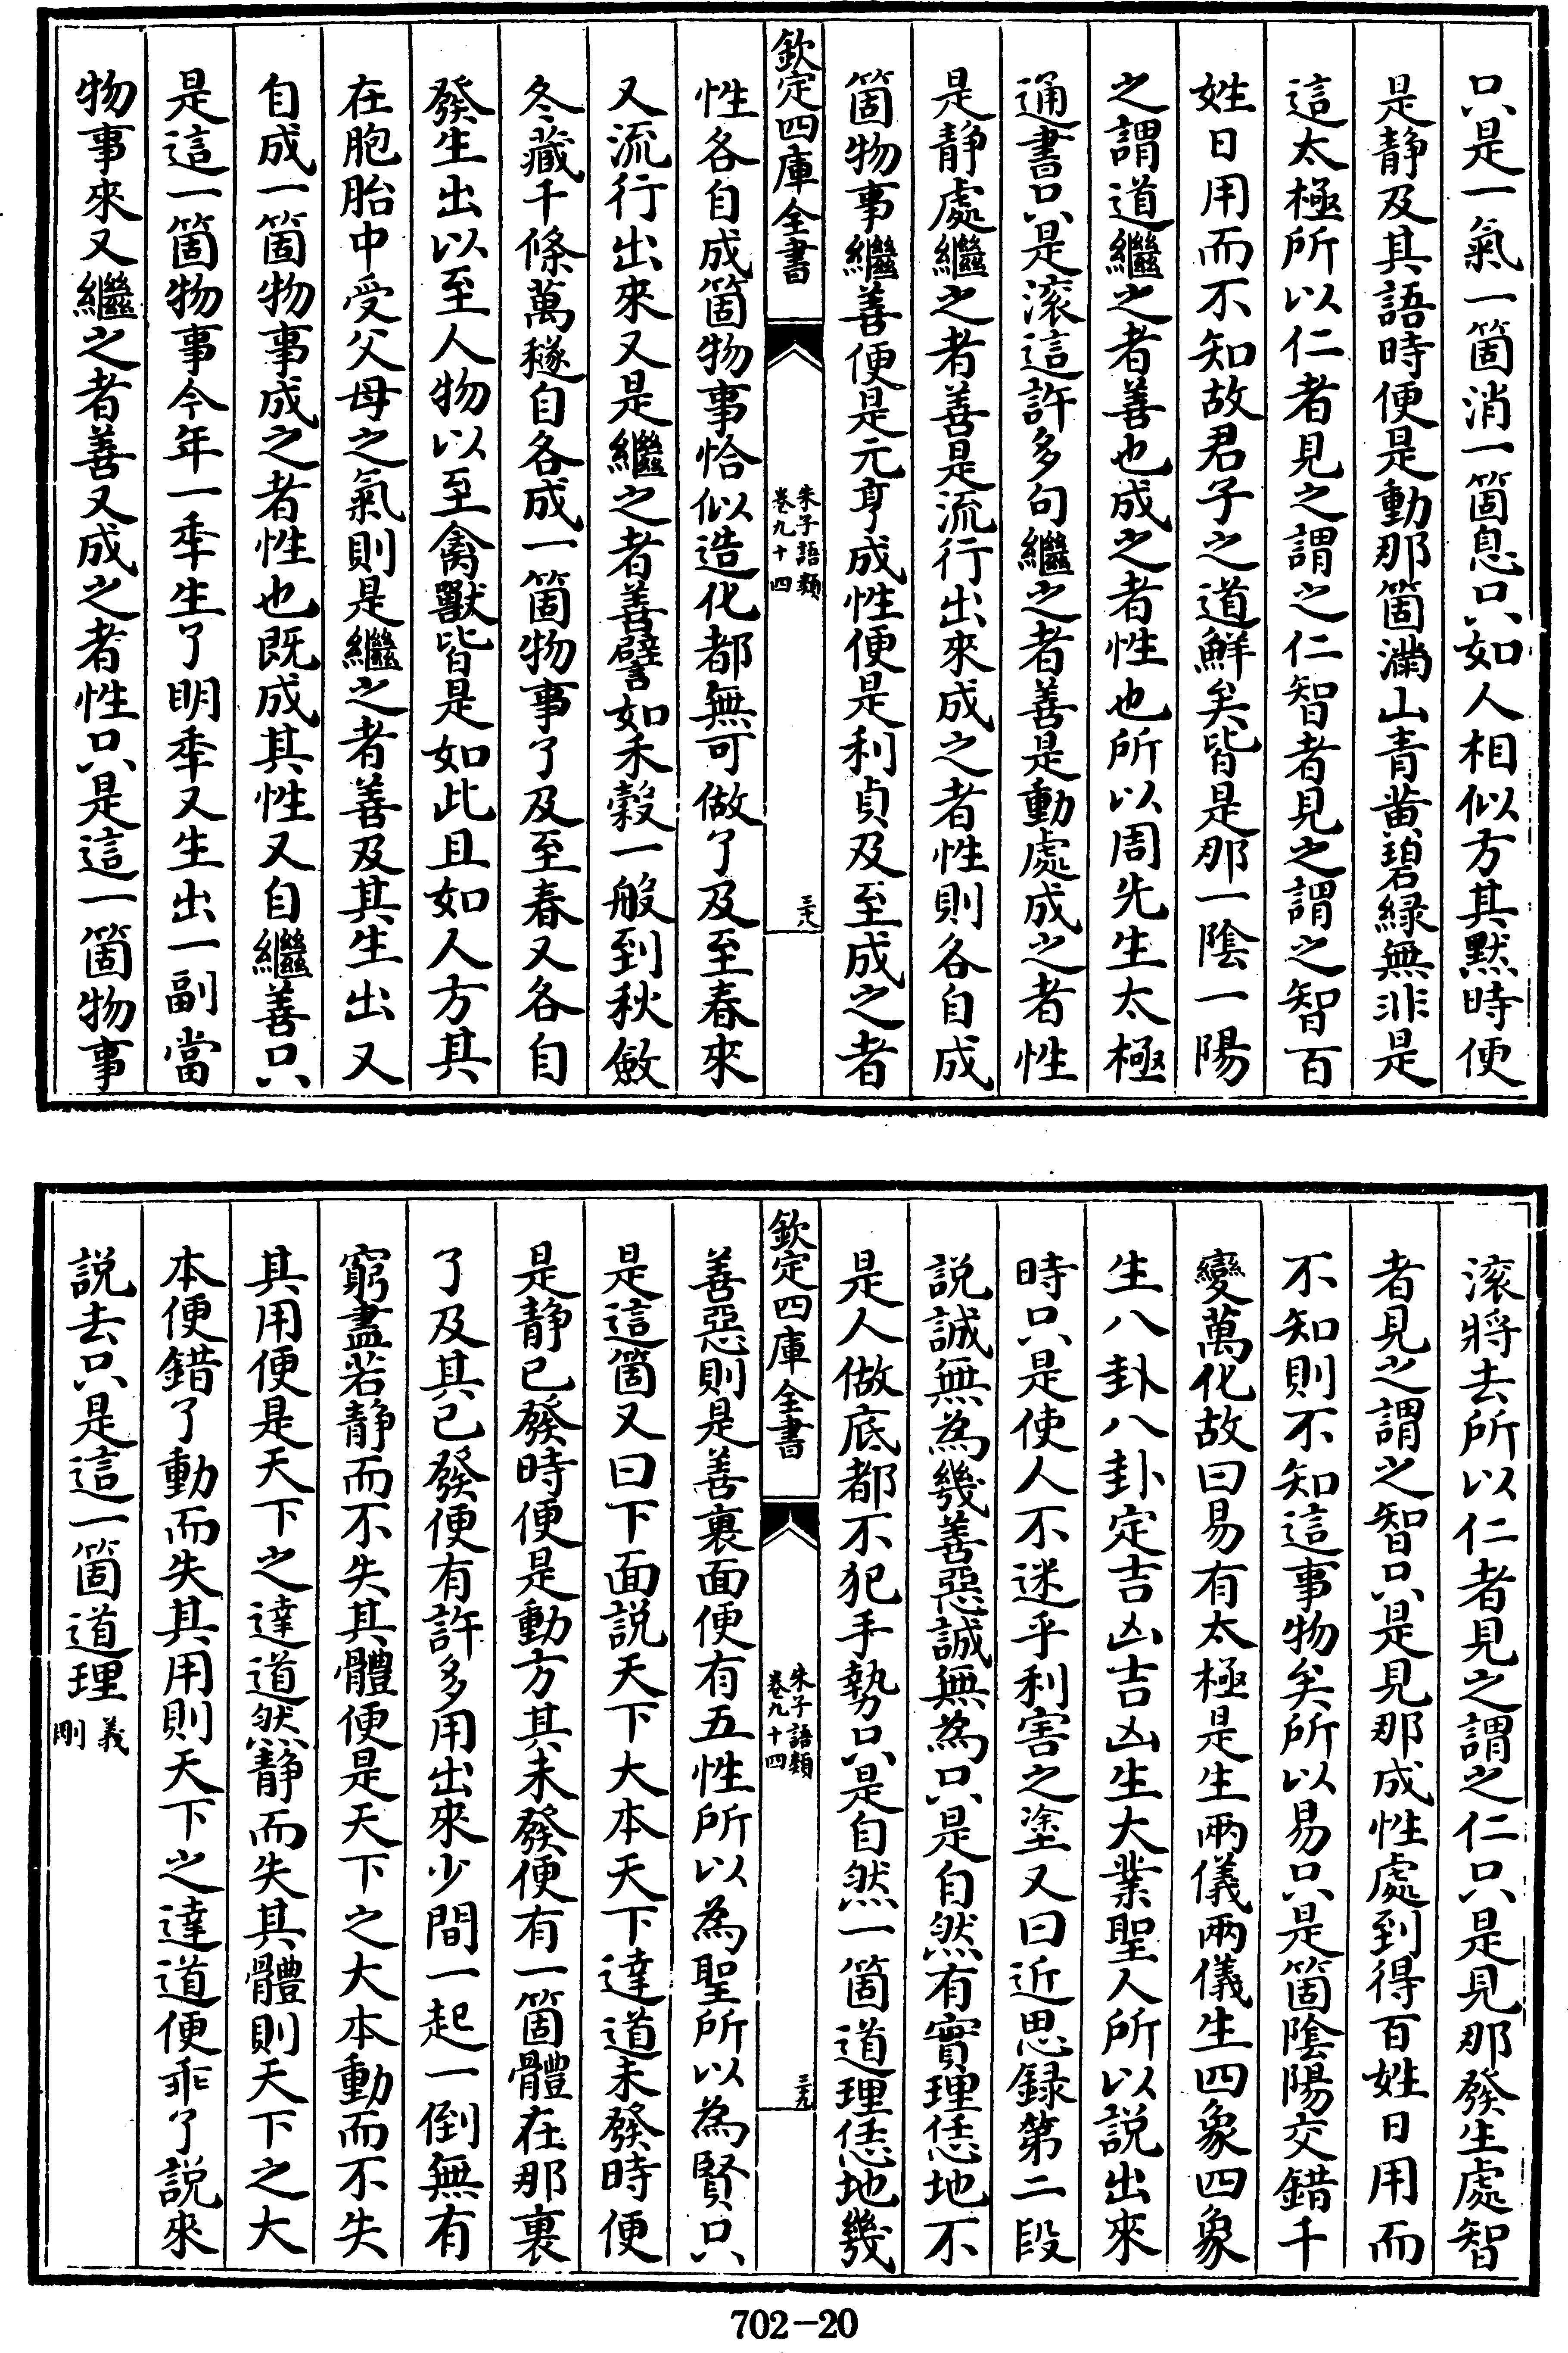 只是一氣一箇消一箇息只如人相似方其黙時便
是静及其語時便是動那箇滿山青黄碧緑無非是
這太極所以仁者見之謂之仁智者見之謂之智百
姓日用而不知故君子之道鮮矣皆是那一陰一陽
之謂道繼之者善也成之者性也所以周先生太極
通書只是滚這許多句繼之者善是動處成之者性
是静處繼之者善是流行出來成之者性則各自成
箇物事繼善便是元亨成性便是利貞及至成之者
欽定四庫全書
朱子語類
卷九十四
三十八
性各自成箇物事恰似造化都無可做了及至春來
又流行出來又是繼之者善譬如禾穀一般到秋斂
冬藏千條萬穟自各成一箇物事了及至春又各自
發生出以至人物以至禽獸皆是如此且如人方其
在胞胎中受父母之氣則是繼之者善及其生出又
自成一箇物事成之者性也既成其性又自繼善只
是這一箇物事今年一秊生了明秊又生出一副當
物事來又繼之者善又成之者性只是這一箇物事
滚將去所以仁者見之謂之仁只是見那發生處智
者見之謂之智只是見那成性處到得百姓日用而
不知則不知這事物矣所以易只是箇陰陽交錯千
變萬化故曰易有太極是生兩儀兩儀生四象四象
生八卦八卦定吉凶吉凶生大業聖人所以説出來
時只是使人不迷乎利害之塗又曰近思録第二段
説誠無為幾善惡誠無為只是自然有實理恁地不
是人做底都不犯手勢只是自然一箇道理恁地幾
欽定四庫全書
朱子語類
卷九十四
三十九
善惡則是善裏面便有五性所以為聖所以為賢只
是這箇又曰下面説天下大本天下達道未發時便
是静已發時便是動方其未發便有一箇體在那裏
了及其已發便有許多用出來少間一起一倒無有
窮盡若静而不失其體便是天下之大本動而不失
其用便是天下之達道然静而失其體則天下之大
本便錯了動而失其用則天下之達道便乖了説來
説去只是這一箇道理義剛
702-20